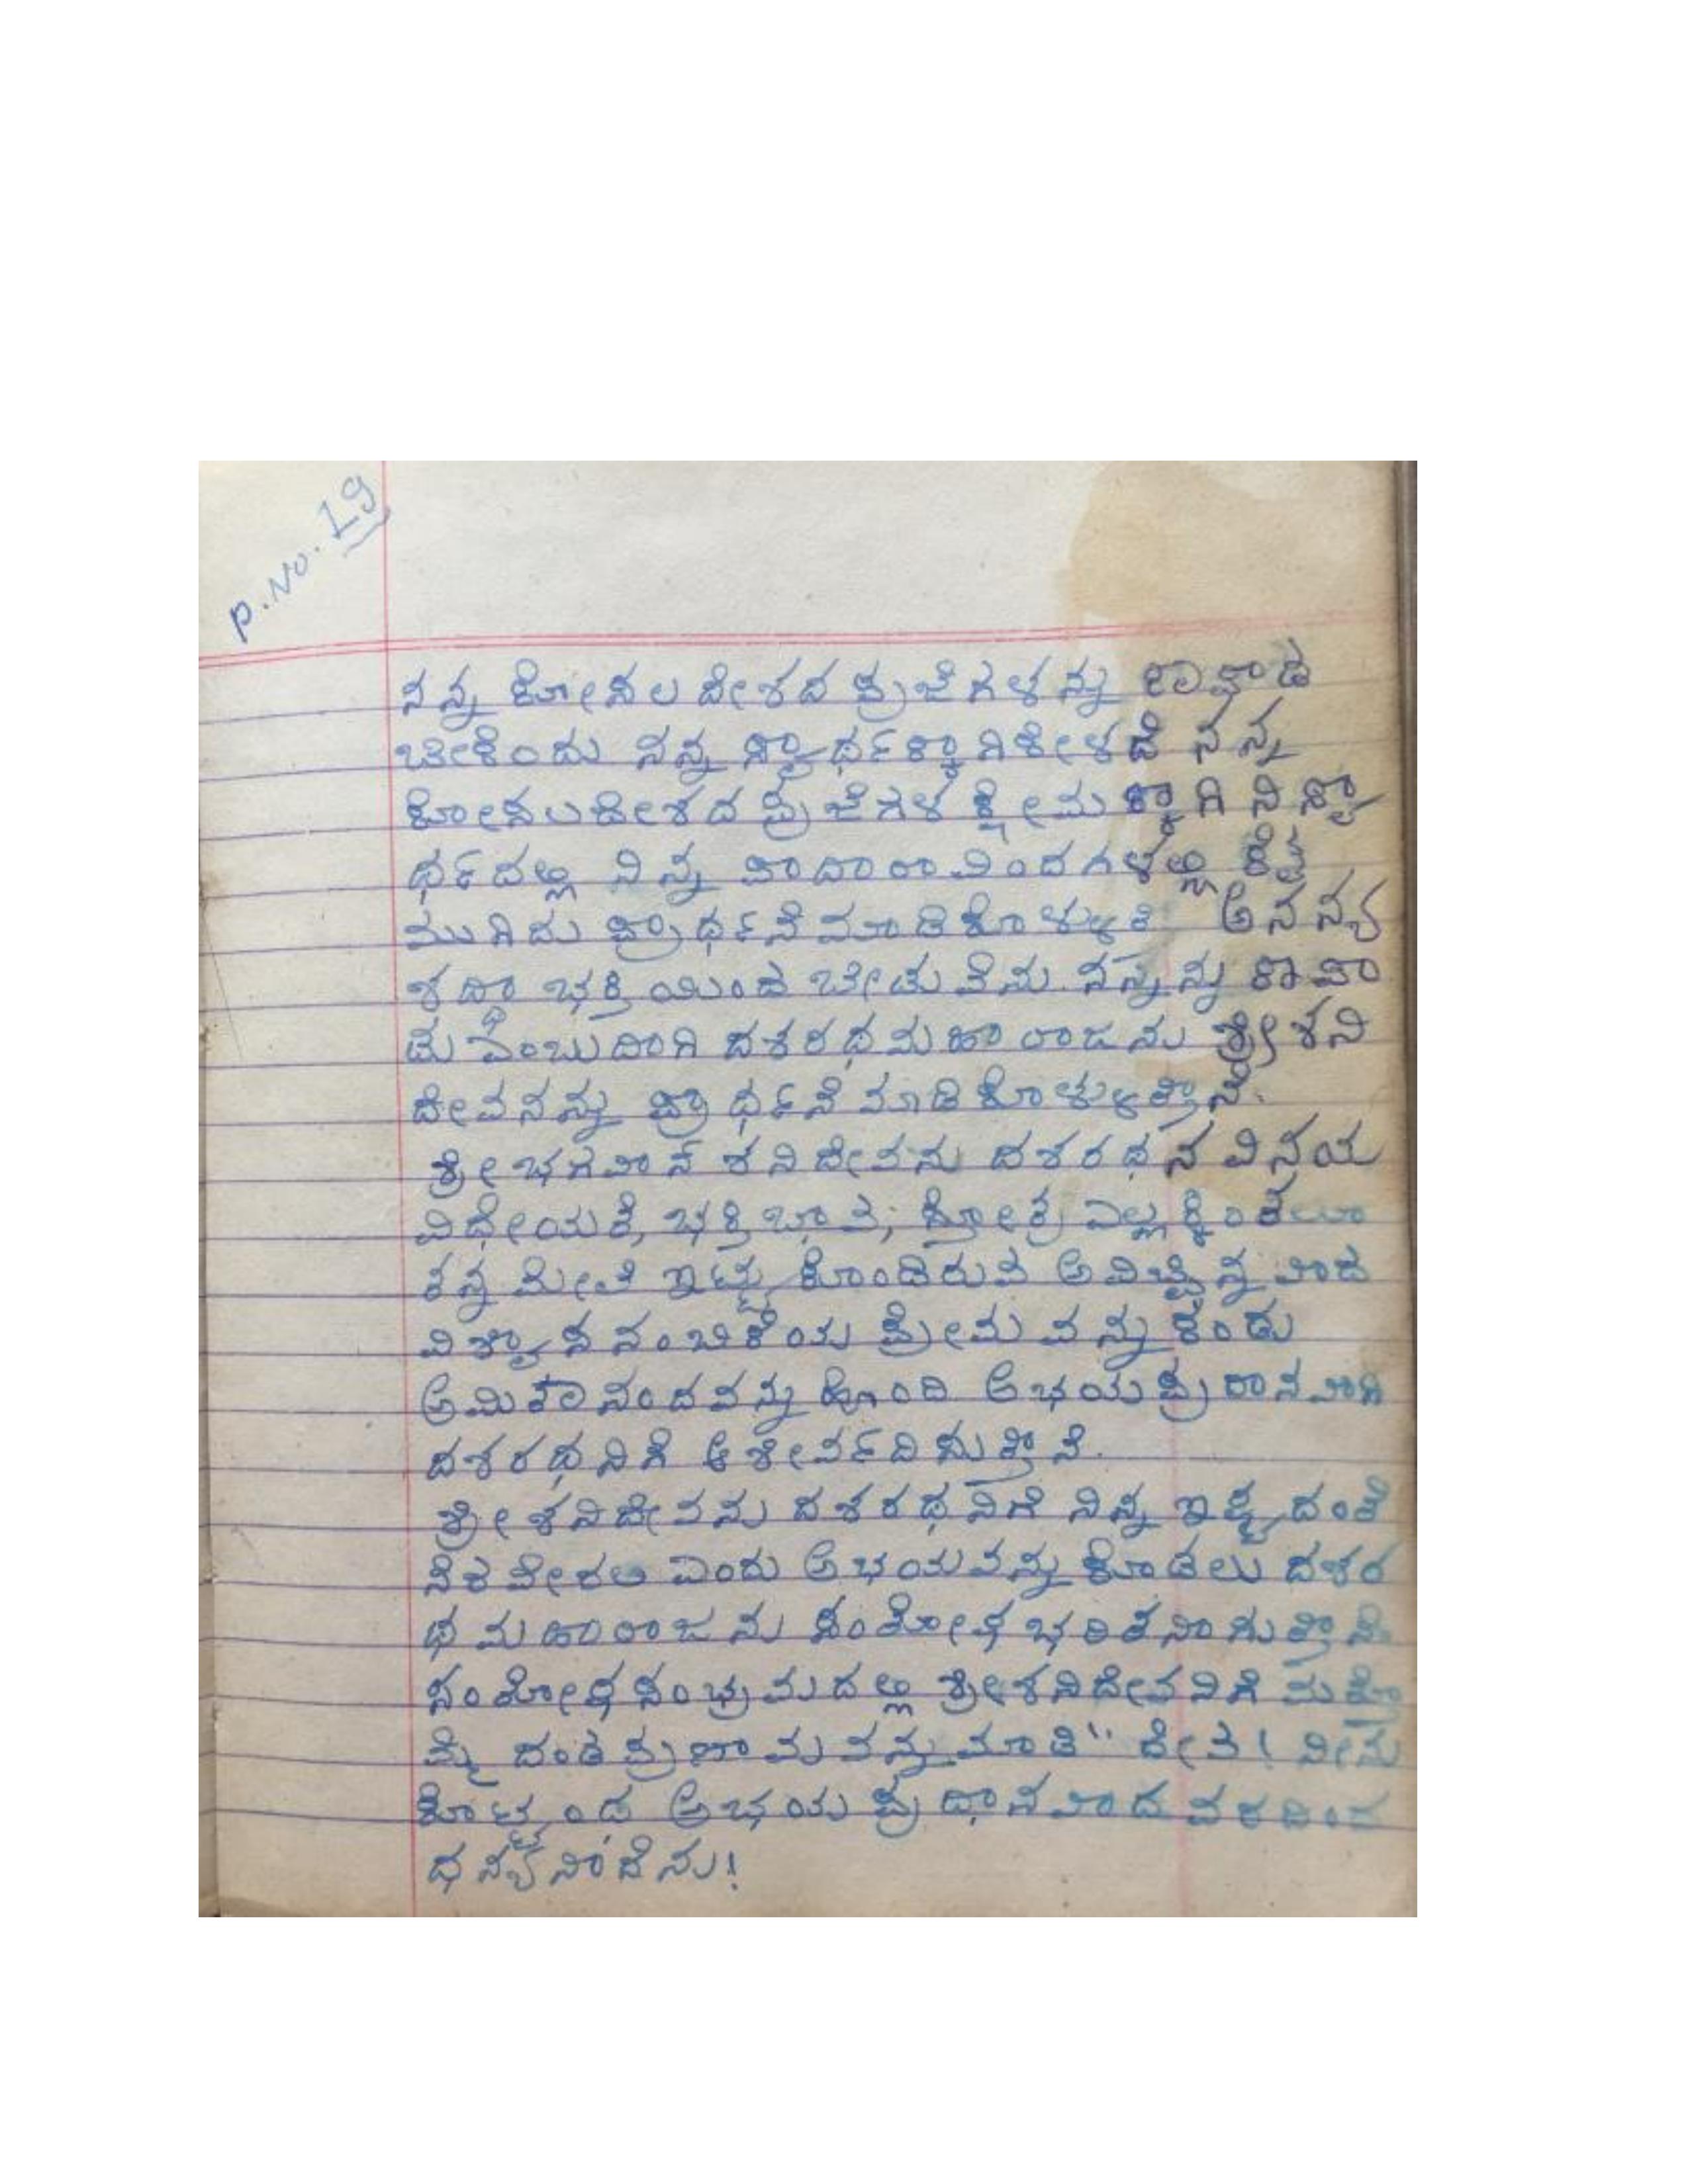 P.No. 19
ನನ್ನ ಕೋಸಲ ದೇಶದ ಪ್ರಜೆಗಳನ್ನು ಕಾಪಾಡ
ಬೇಕೆಂದು ನನ್ನ ಸ್ವಾರ್ಥಕ್ಕಾಗಿಕೇಳದೆ ನನ್ನ
ಕೋಸಲದೇಶದ ಪ್ರಜೆಗಳ ಕ್ಷೇಮಕ್ಕಾಗಿ ನಿಸ್ವಾ
ರ್ಥದಲ್ಲಿ ನಿನ್ನ ಪಾದಾರಾವಿಂದಗಳಲ್ಲಿ ಕೈ
ಮುಗಿದು ಪ್ರಾರ್ಥನೆಮಾಡಿಕೊಳ್ಳುತ ಅನನ್ಯ
ಶದ್ಧಾ ಭಕ್ತಿಯಿಂದ ಬೇಡುವೆನು. ನನ್ನನ್ನು ಕಾಪಾ
ಡು ಎಂಬುದಾಗಿ ದಶರಥಮಹಾರಾಜನು ಶ್ರೀಶನಿ
ದೇವನನ್ನು ಪ್ರಾರ್ಥನೆ ಮಾಡಿಕೊಳ್ಳುತ್ತಾನೆ.
ಶ್ರೀಭಗವಾನ್ ಶನಿದೇವನು ದಶರಥನ ವಿನಯ
ವಿಧೇಯತೆ, ಭಕ್ತಿಭಾವ, ಸ್ತೋತ್ರ ಎಲ್ಲಕ್ಕಿಂತಲೂ
ತನ್ನ ಮೇಲೆ ಇಟ್ಟು ಕೊಂಡಿರುವ ಅವಿಚ್ಛಿನ್ನವಾದ
ವಿಶ್ವಾಸ ನಂಬಿಕೆಯ ಪ್ರೇಮವನ್ನು ಕಂಡು
ಅಮಿತಾನಂದವನ್ನು ಹೊಂದಿ ಅಭಯಪ್ರದಾನವಾಗಿ
ದಶರಥನಿಗೆ ಆಶೀರ್ವದಿಸುತ್ತಾನೆ.
ಶ್ರೀಶನಿದೇವನು ದಶರಥನಿಗೆ ನಿನ್ನ ಇಷ್ಟದಂತೆ
ನೆರವೇರಲಿ ಎಂದು ಅಭಯವನ್ನು ಕೊಡಲು ದಶರ
ಥ ಮಹಾರಾಜನು ಸಂತೋಷಭರಿತನಾಗುತ್ತಾನೆ.
ಸಂತೋಷಸಂಭ್ರಮದಲ್ಲಿ ಶ್ರೀಶನಿದೇವನಿಗೆ ಮತ್ತೊ
ಮ್ಮೆ ದಂಡಪ್ರಣಾಮವನ್ನು ಮಾಡಿ" ದೇವ! ನೀನು
ಕೊಟ್ಟಂಥ ಅಭಯ ಪ್ರಧಾನವಾದ ವರದಿಂದ
ಧನ್ಯನಾದೆನು!